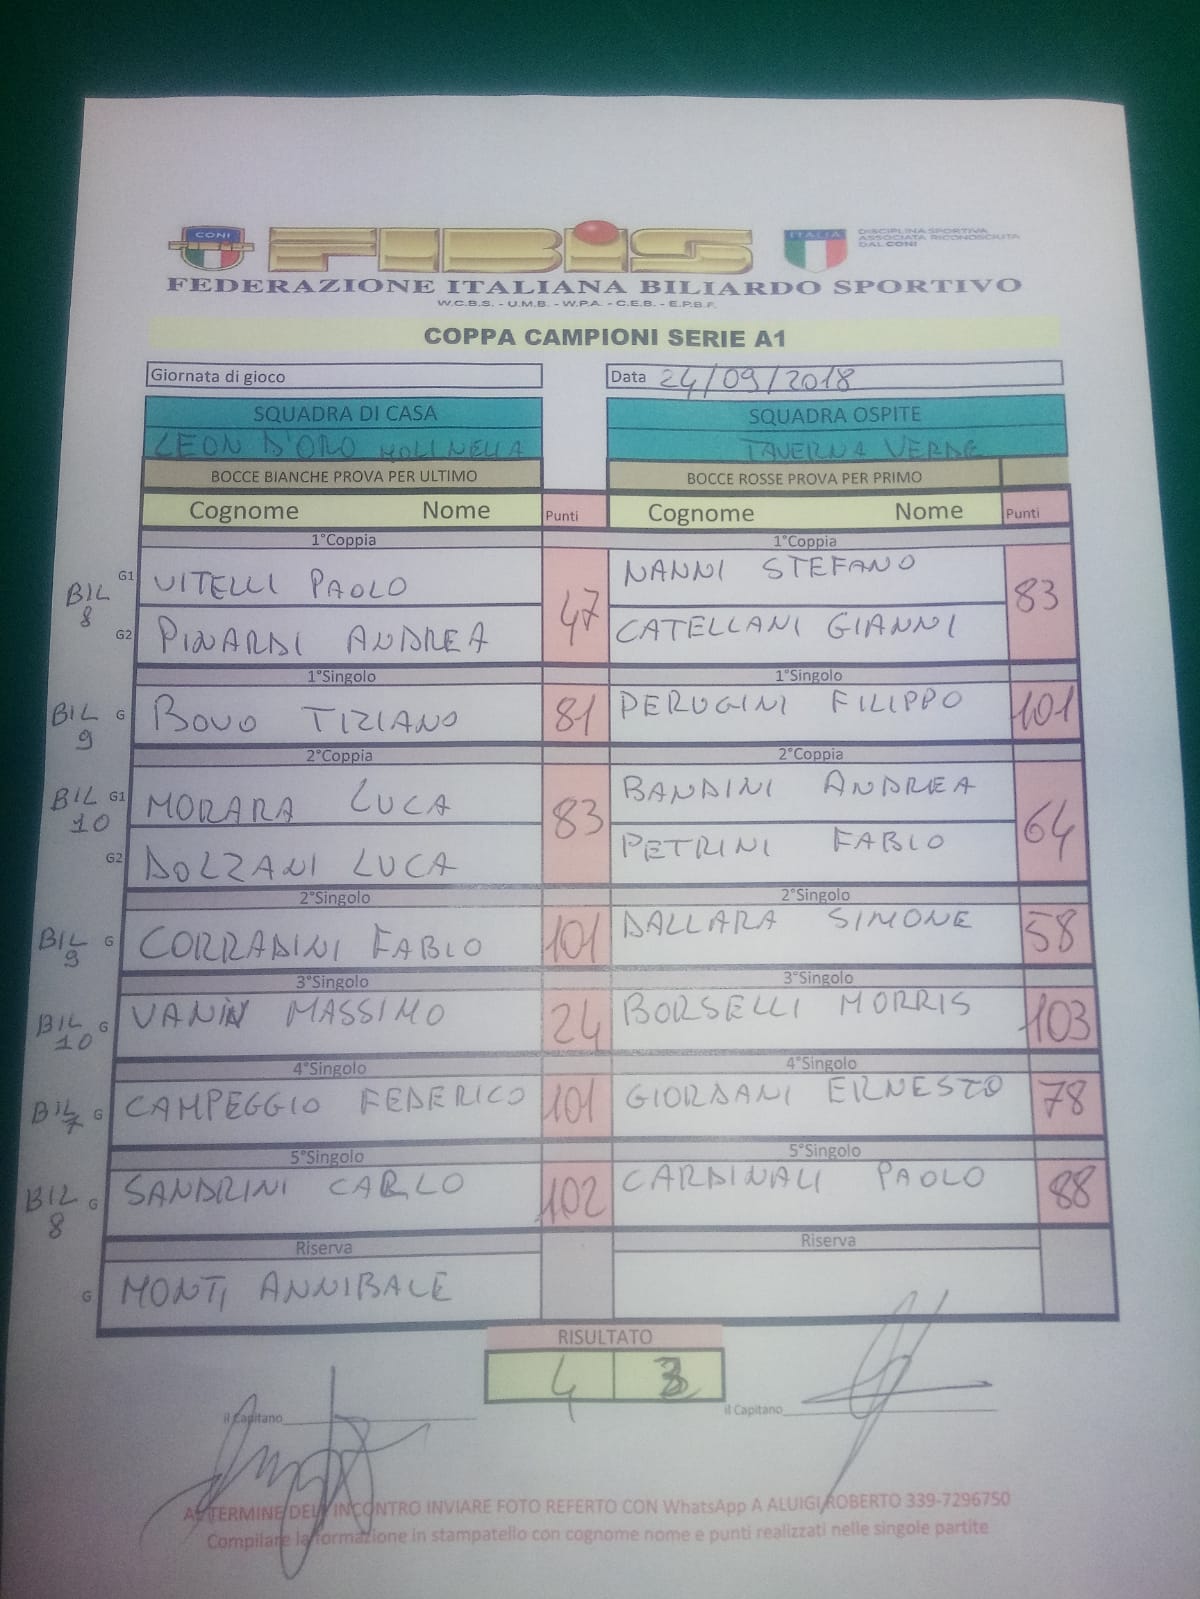 CONI
FIBiS
ITALIA
DISCIPLINA SPORTIVA
ASSOCIATA RICONOSCIUTA
DAL CONI
FEDERAZIONE ITALIANA BILIARDO SPORTIVO
W.C.B.S. - U.M.B. - W.P.A. - C.E.B. - E.P.B.F.
COPPA CAMPIONI SERIE A1
Giornata di gioco
Data 24/09/2018
SQUADRA DI CASA SQUADRA OSPITE
LEON D'ORO MOLINELLA TAVERNA VERDE
BOCCE BIANCHE PROVA PER ULTIMO BOCCE ROSSE PROVA PER PRIMO
Cognome Nome Punti Cognome Nome Punti
1°Coppia 1°Coppia
BIL 8 G1 VITELLI PAOLO 47 NANNI STEFANO 83
G2 PINARDI ANDREA CATELLANI GIANNI
1°Singolo 1°Singolo
BIL 9 G BOVO TIZIANO 81 PERUGINI FILIPPO 101
2°Coppia 2°Coppia
BIL 10 G1 MORARA LUCA 83 BANDINI ANDREA 64
G2 DOLZANI LUCA PETRINI FABIO
2°Singolo 2°Singolo
BIL 9 G CORRADINI FABIO 101 DALLARA SIMONE 58
3°Singolo 3°Singolo
BIL 10 G VANIN MASSIMO 24 BORSELLI MORRIS 103
4°Singolo 4°Singolo
BIL 7 G CAMPEGGIO FEDERICO 101 GIORDANI ERNESTO 78
5°Singolo 5°Singolo
BIL 8 G SANDRINI CARLO 102 CARDINALI PAOLO 88
Riserva Riserva
G MONTI ANNIBALE
RISULTATO
4 3
il Capitano il Capitano
AL TERMINE DELL'INCONTRO INVIARE FOTO REFERTO CON WhatsApp A ALUIGI ROBERTO 339-7296750
Compilare la formazione in stampatello con cognome nome e punti realizzati nelle singole partite